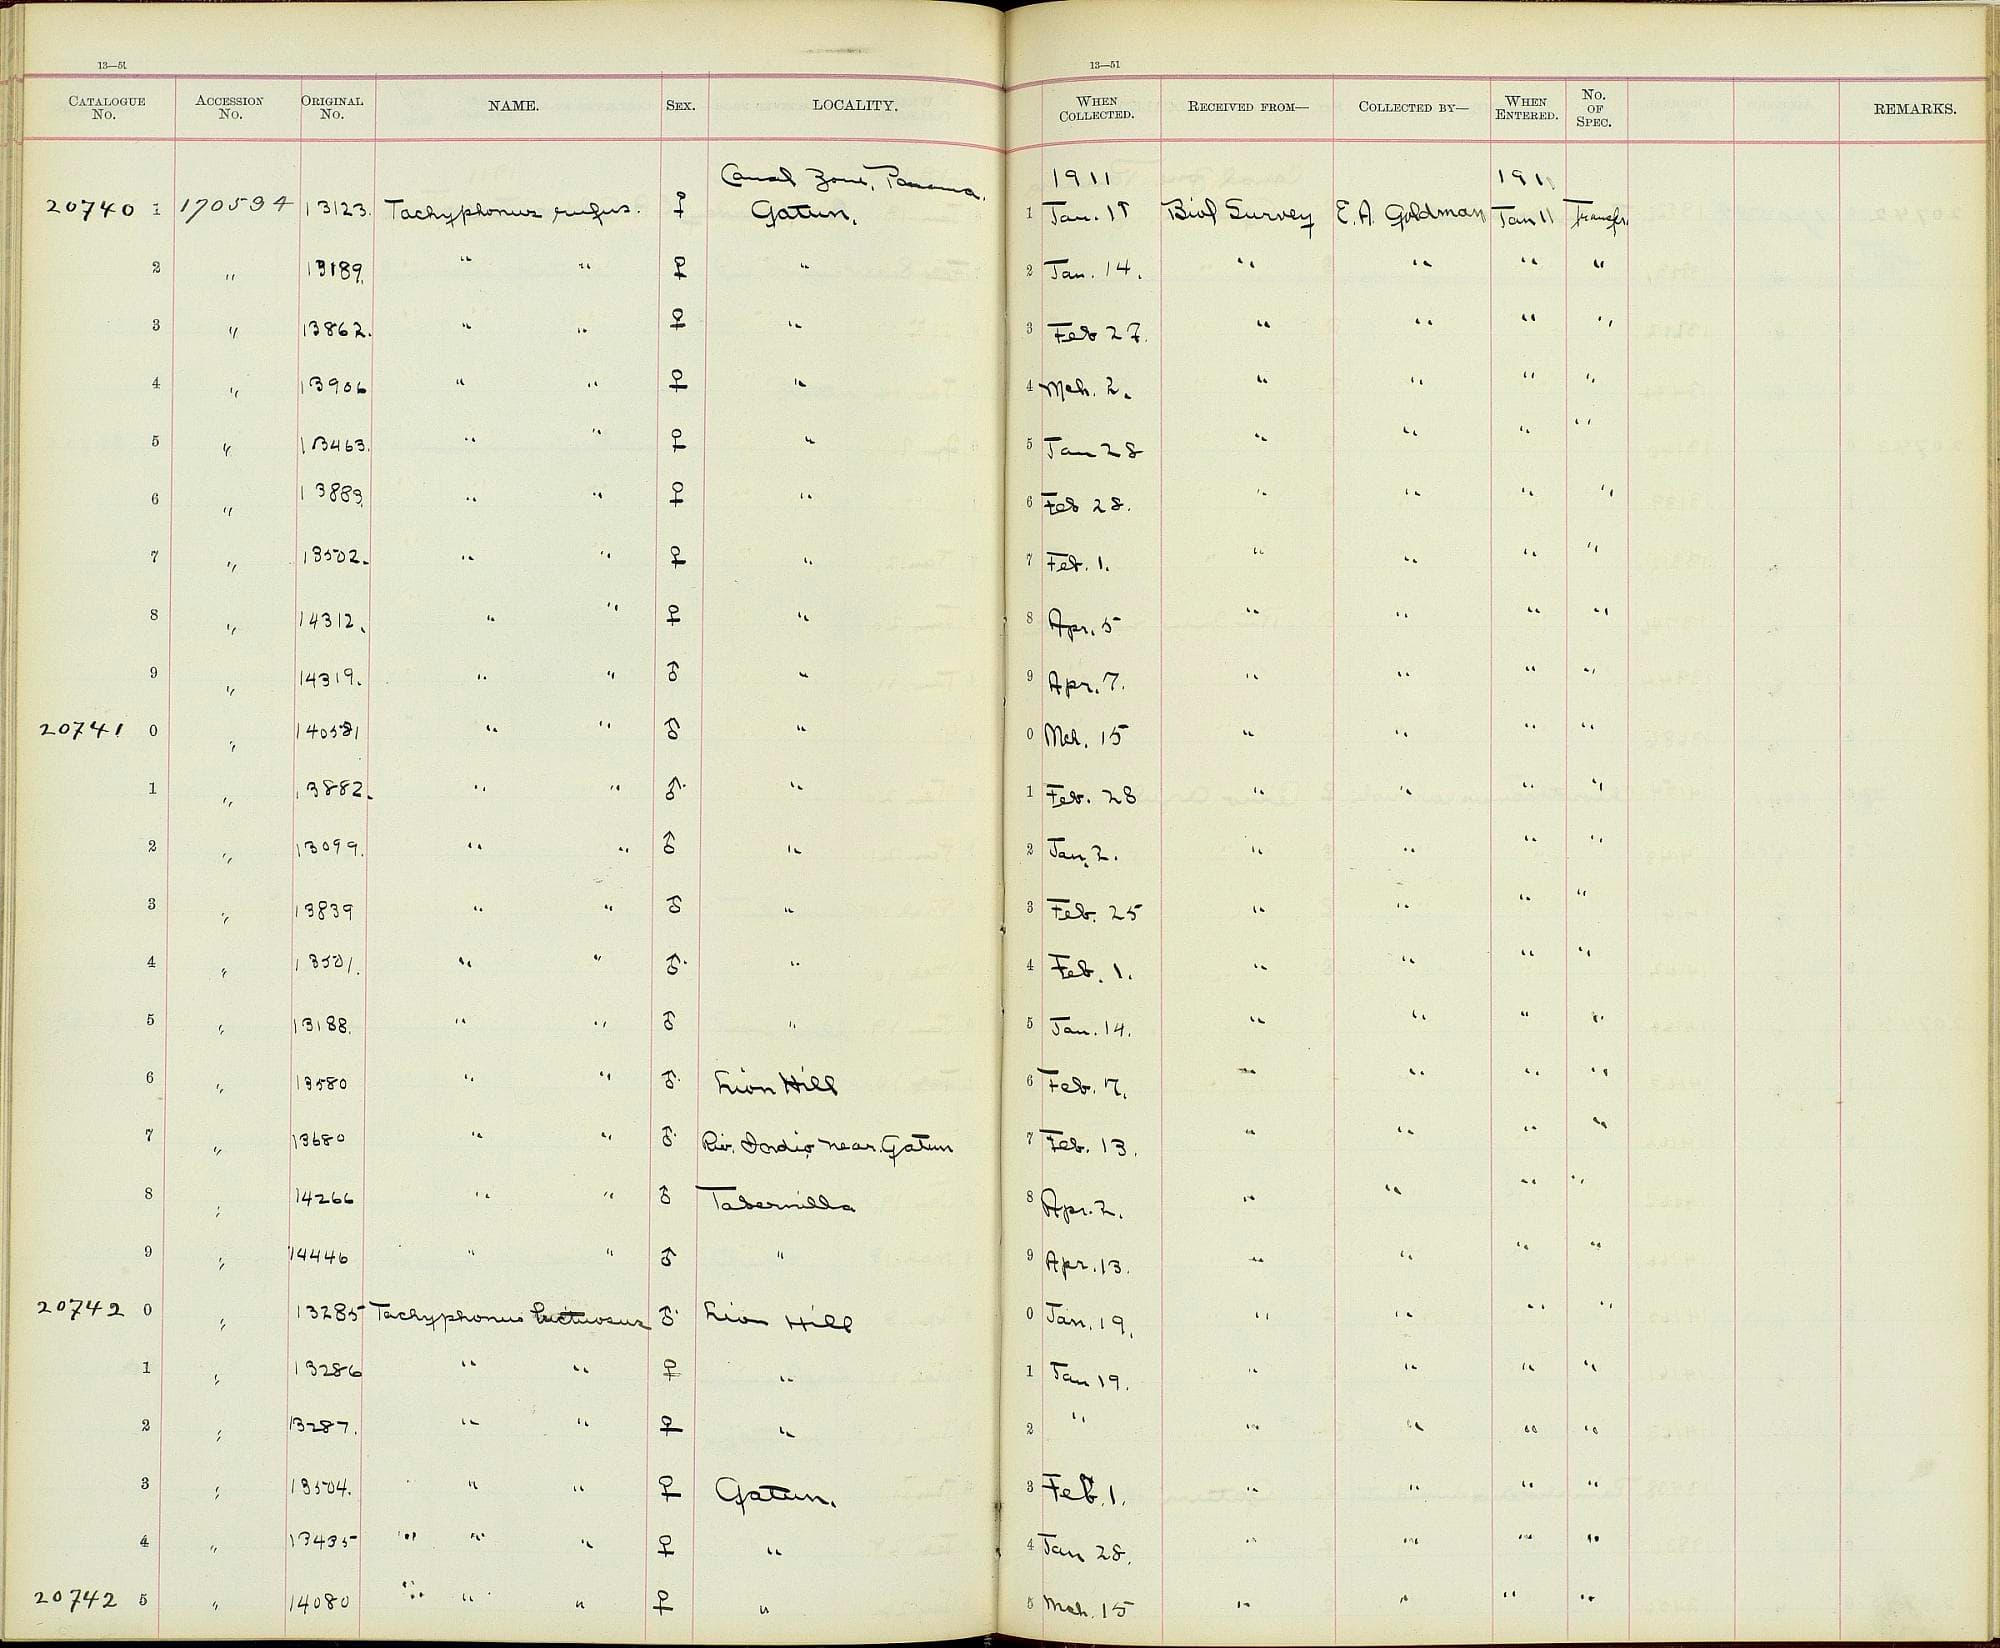 13—51 13—51
CATALOGUE No. ACCESSION No. ORIGINAL No. NAME. SEX. LOCALITY. WHEN COLLECTED. RECEIVED FROM— COLLECTED BY— WHEN ENTERED. No. OF SPEC. REMARKS.
Canal Zone, Panama. 1911 1911
20740 1 170594 13123. Tachyphonus rufus. ♀ Gatun. 1 Jan. 11 Biol Survey E. A. Goldman Jan 11 Transfr.
2 " 13189. " " ♀ " 2 Jan. 14. " " " "
3 " 13862. " " ♀ " 3 Feb 27. " " " "
4 " 13906 " " ♀ " 4 Mch. 2. " " " "
5 " 13463. " " ♀ " 5 Jan 28 " " " "
6 " 13883. " " ♀ " 6 Feb 28. " " " "
7 " 13502. " " ♀ " 7 Feb. 1. " " " "
8 " 14312. " " ♀ " 8 Apr. 5 " " " "
9 " 14319. " " ♂ " 9 Apr. 7. " " " "
20741 0 " " " ♂ " 0 Mch. 15 " " " "
1 " 13882. " " ♂ " 1 Feb. 28 " " " "
2 " 13099. " " ♂ " 2 Jan. 2. " " " "
3 " 13839 " " ♂ " 3 Feb. 25 " " " "
4 " 13501. " " ♂ " 4 Feb. 1. " " " "
5 " 13188. " " ♂ " 5 Jan. 14. " " " "
6 " 13580 " " ♂ Lion Hill 6 Feb. 7. " " " "
7 " 13680 " " ♂ near Gatun 7 Feb. 13. " " " "
8 " 14266 " " ♂ Tabernilla 8 Apr. 2. " " " "
9 " 14446 " " ♂ " 9 Apr. 13. " " " "
20742 0 " 13285 Tachyphonus luctuosus ♂ Lion Hill 0 Jan. 19. " " " "
1 " 13286 " " ♀ " 1 Jan 19. " " " "
2 " 13287. " " ♀ " 2 " " " " "
3 " 13504. " " ♀ Gatun. 3 Feb. 1. " " " "
4 " 13435 " " " ♀ " 4 Jan 28. " " " "
20742 5 " 14080 " " " ♀ " 5 Mch. 15 " " " "